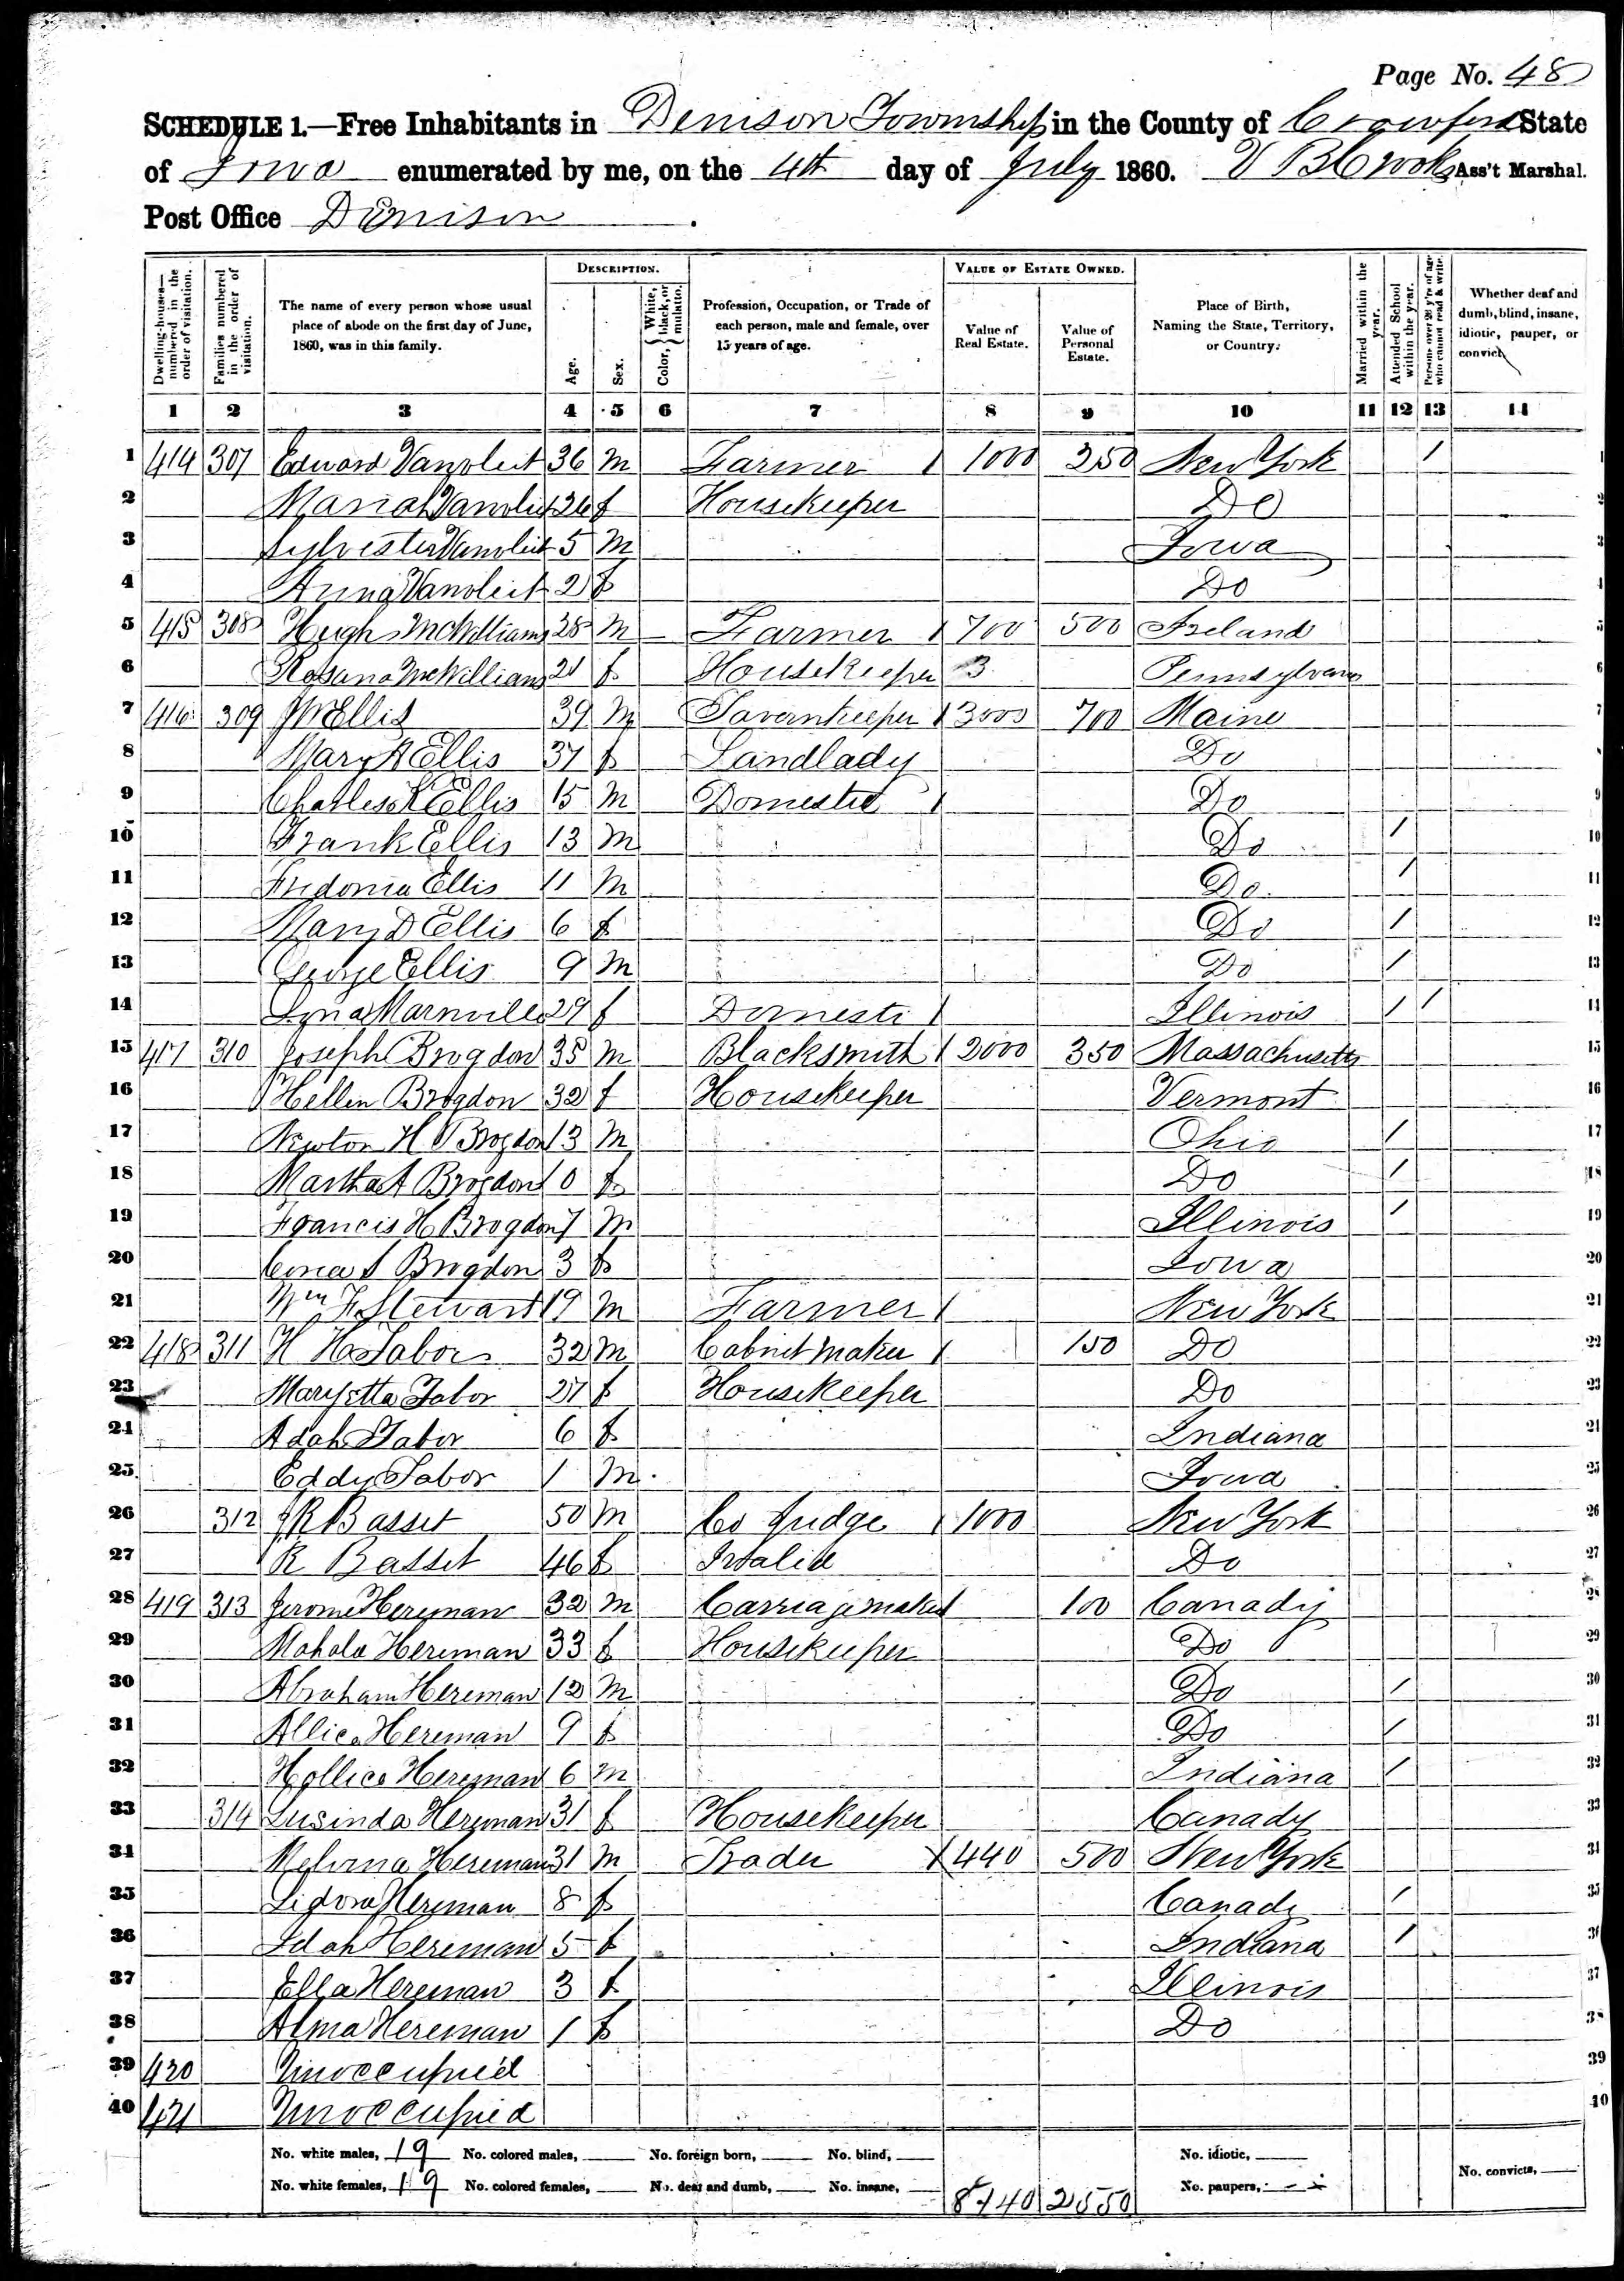 Page No. 48
SCHEDULE 1.—Free Inhabitants in Denison Township in the County of Crawford State
of Iowa enumerated by me, on the 4th day of July 1860. Ass't Marshal.
Post Office Denison.
Dwelling-houses—numbered in the order of visitation.
Families numbered in the order of visitation.
The name of every person whose usual place of abode on the first day of June, 1860, was in this family.
DESCRIPTION.
Age.
Sex.
Color, { White, black, or mulatto.
Profession, Occupation, or Trade of each person, male and female, over 15 years of age.
VALUE OF ESTATE OWNED.
Value of Real Estate.
Value of Personal Estate.
Place of Birth, Naming the State, Territory, or Country.
Married within the year.
Attended School within the year.
Persons over 20 y'rs of age who cannot read & write.
Whether deaf and dumb, blind, insane, idiotic, pauper, or convict.
1 2 3 4 5 6 7 8 9 10 11 12 13 14
1 414 307 Edward Vanvleit 36 m Farmer 1 1000 250 New York / 1
2 Mariah Vanvleit 26 f Housekeeper Do 2
3 Sylvester Vanvleit 5 m Iowa 3
4 Anna Vanvleit 2 f Do 4
5 415 308 Hugh McWilliams 28 m Farmer 1 700 500 Ireland 5
6 Rosana McWilliams 21 f Housekeeper 3 Pennsylvania 6
7 416 309 J W Ellis 39 m Tavernkeeper 1 3000 700 Maine 7
8 Mary A Ellis 37 f Landlady Do
9 Charles K Ellis 15 m Domestic 1 Do 9
10 Frank Ellis 13 m Do / 10
11 Fredonia Ellis 11 m Do / 11
12 Mary D Ellis 6 f Do / 12
13 George Ellis 9 m Do / 13
14 Marnville 29 f Domesti 1 Illinois / / 14
15 417 310 Joseph Brogdon 35 m Blacksmith 1 2000 350 Massachusetts 15
16 Hellen Brogdon 32 f Housekeeper Vermont 16
17 Newton H Brogdon 13 m Ohio / 17
18 Martha A Brogdon 10 f Do / 18
19 Francis H Brogdon 7 m Illinois / 19
20 Brogdon 3 f Iowa 20
21 Wm F Stewart 19 m Farmer 1 New York 21
22 418 311 H H Tabor 32 m Cabnit maker 1 150 Do 22
23 Maryetta Tabor 27 f Housekeeper Do 23
24 Adah Tabor 6 f Indiana 24
25 Eddy Tabor 1 m Iowa 25
26 312 J R Basset 50 m Co Judge 1 1000 New York 26
27 R Basset 46 f Invalid Do 27
28 419 313 Jerome Hereman 32 m Carriage maker 1 100 Canady 28
29 Mahala Hereman 33 f Housekeeper Do 29
30 Abraham Hereman 12 m Do / 30
31 Allice Hereman 9 f Do / 31
32 Hollice Hereman 6 m Indiana / 32
33 314 Lusinda Hereman 31 f Housekeeper Canady 33
34 Melvina Hereman 31 m Trader X 440 500 New York 34
35 Hereman 8 f Canady / 35
36 Idah Hereman 5 f Indiana / 36
37 Ella Hereman 3 f Illinois 37
38 Alma Hereman 1 f Do 38
39 420 Unoccupied 39
40 421 Unoccupied 40
No. white males, 19 No. colored males, No. foreign born, No. blind, No. idiotic,
No. white females, 19 No. colored females, No. deaf and dumb, No. insane, 8140 2550 No. paupers, No. convicts,